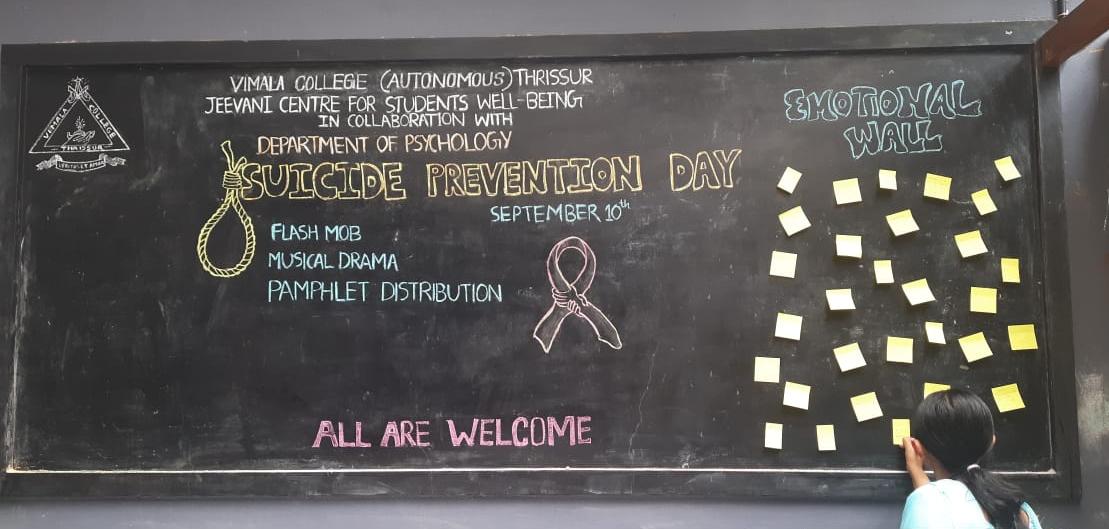 VIMALA COLLEGE
THRISSUR
VIMALA COLLEGE (AUTONOMOUS) THRISSUR
JEEVANI CENTRE FOR STUDENTS WELL-BEING
IN COLLABORATION WITH
DEPARTMENT OF PSYCHOLOGY
SUICIDE PREVENTION DAY
SEPTEMBER 10th
FLASH MOB
MUSICAL DRAMA
PAMPHLET DISTRIBUTION
ALL ARE WELCOME
EMOTIONAL
WALL